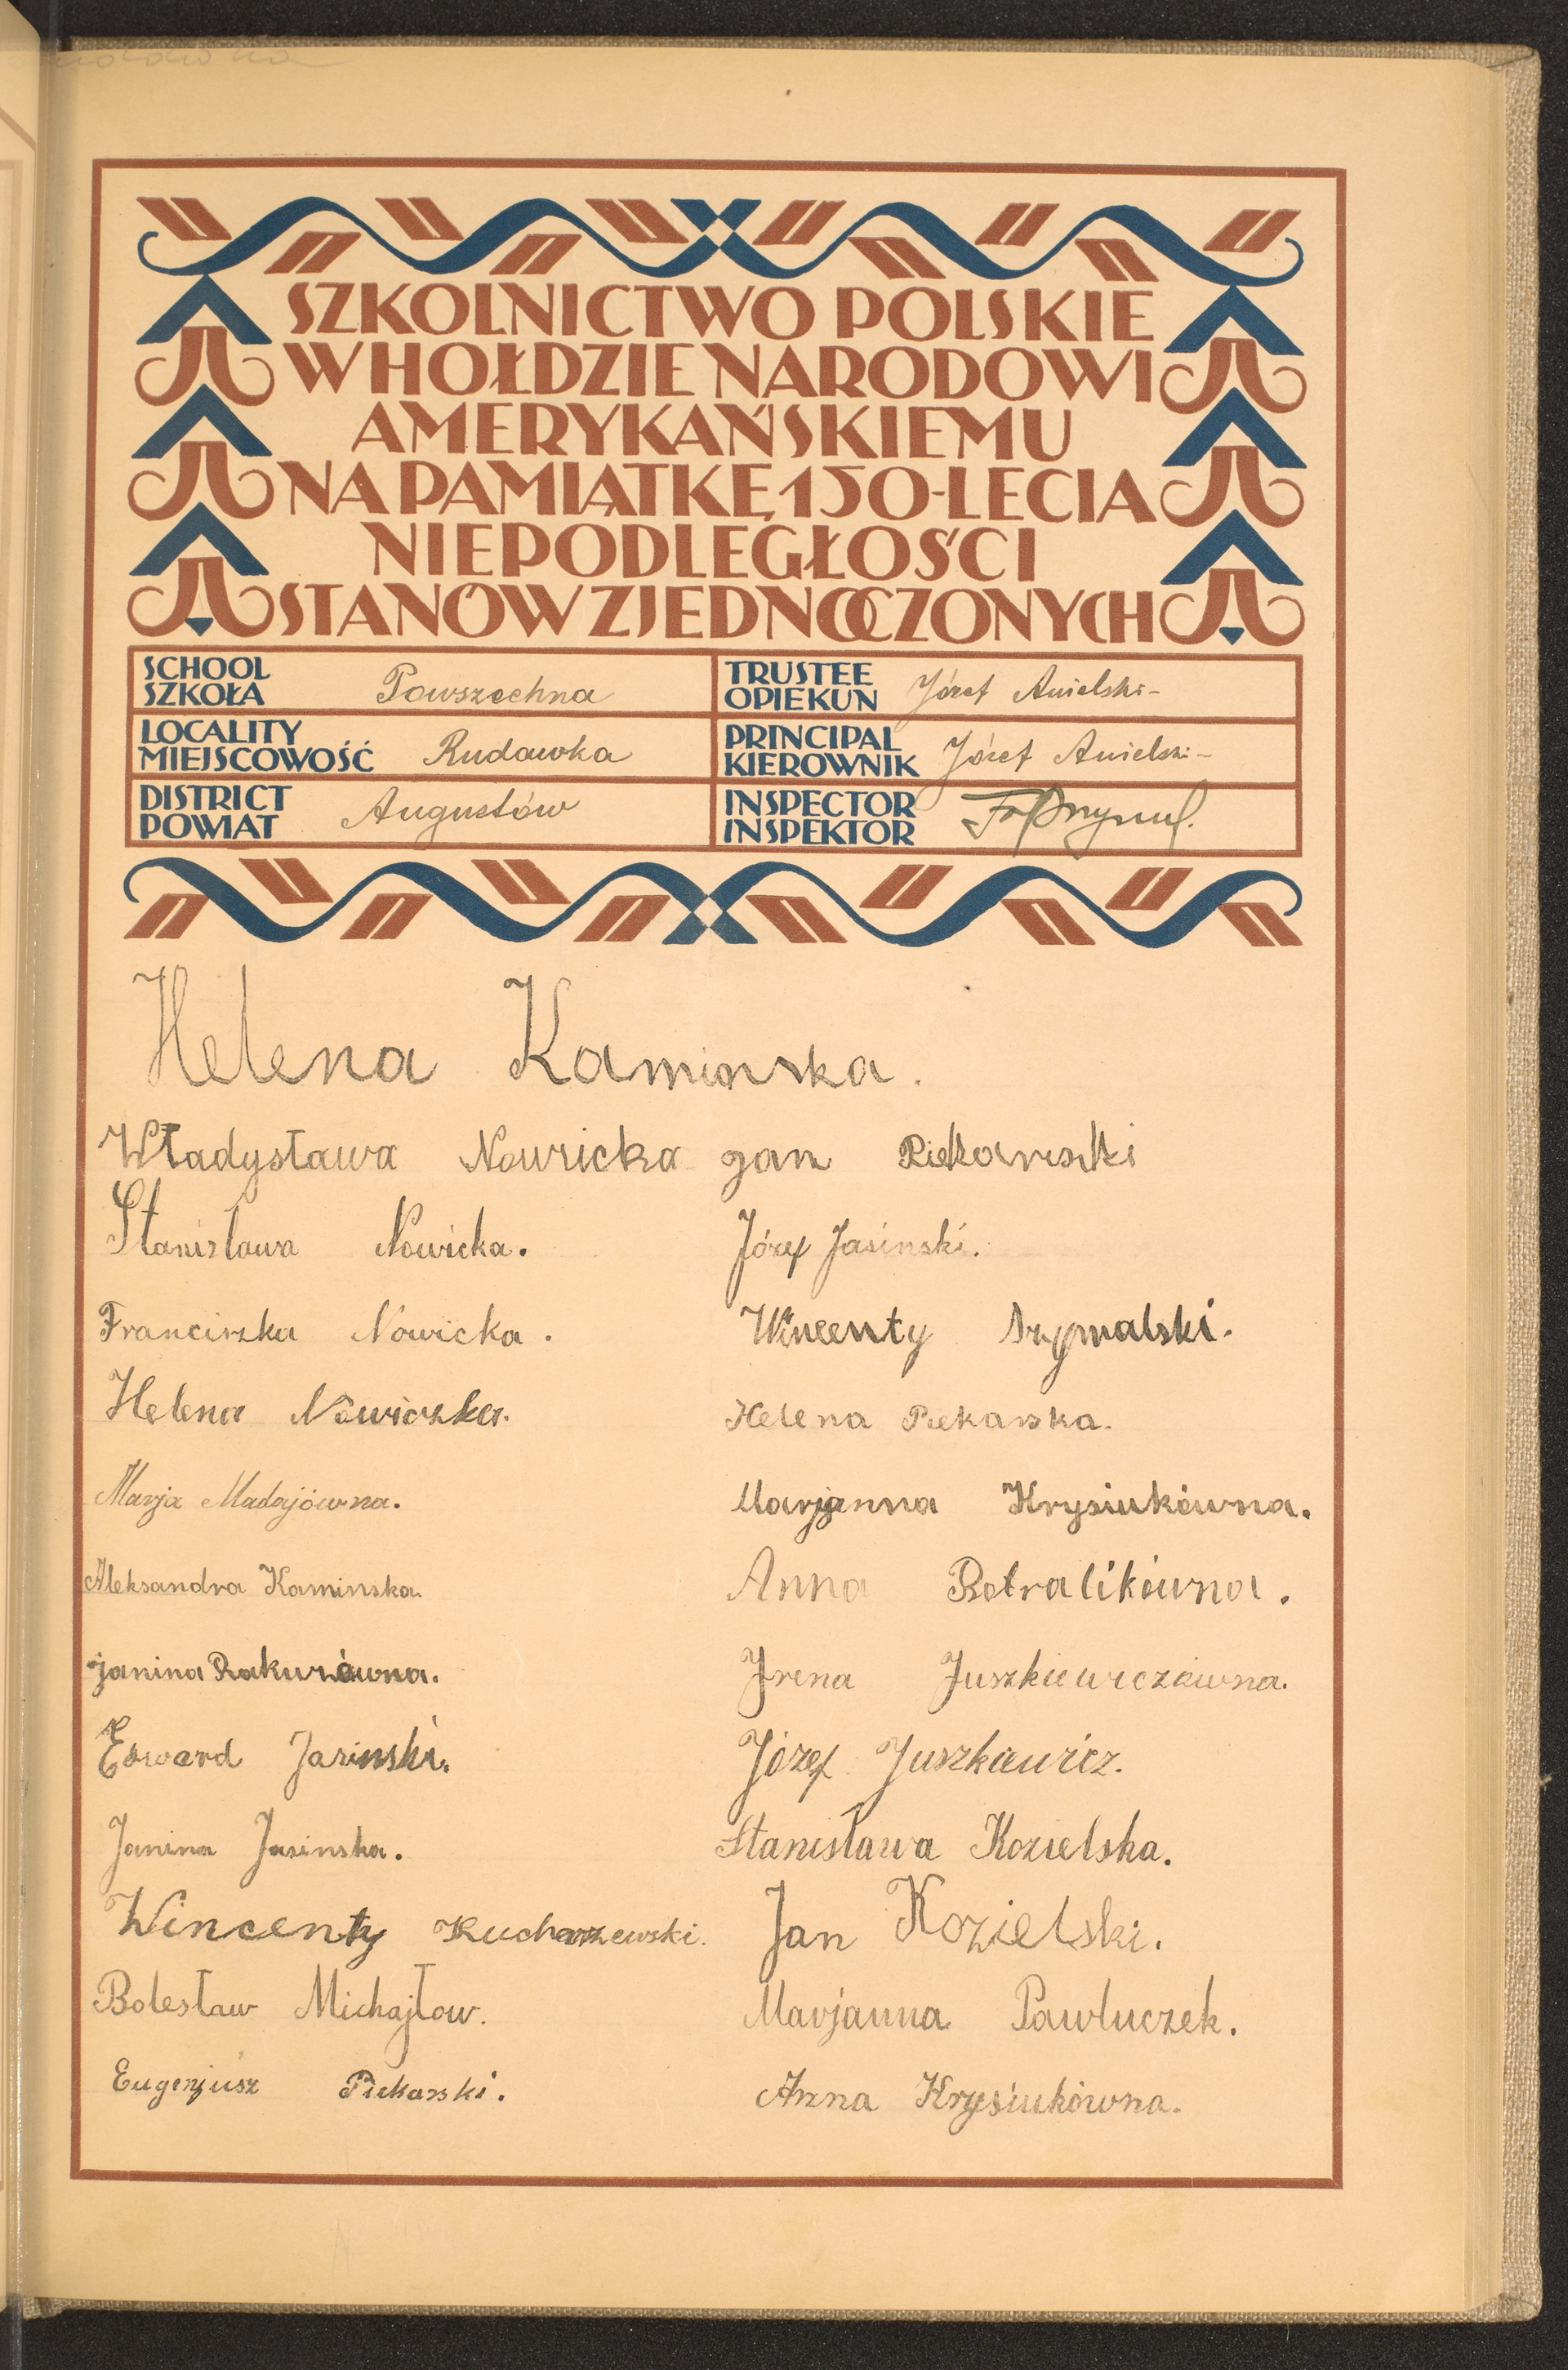 SZKOLNICTWO POLSKIE
W HOŁDZIE NARODOWI
AMERYKAŃSKIEMU
NA PAMIĄTKĘ 150-LECIA
NIEPODLEGŁOŚCI
STANÓW ZJEDNOCZONYCH
SCHOOL
SZKOŁA Powszechna
TRUSTEE
OPIEKUN Józef Anielski-
LOCALITY
MIEJSCOWOŚĆ Rudawka
PRINCIPAL
KIEROWNIK Józef Anielski-
DISTRICT
POWIAT Augustów
INSPECTOR
INSPEKTOR
Helena Kaminska.
Władysława Nowicka
Stanisława Nowicka.
Franciszka Nowicka.
Helena Nowiczka.
Marja Madajówna.
Aleksandra Kaminska.
Janina Rakurówna.
Edward Jasinski.
Janina Jasinska.
Wincenty Kucharzewski.
Bolesław Michajłow.
Eugenjusz Piekarski.
Jan Piekarski
Józef Jasinski.
Wincenty
Helena Piekarska.
Marjanna Krysiukówna.
Anna Potralikówna.
Jrena Juszkiewiczówna.
Józef Juszkiewicz.
Stanisława Kozielska.
Jan Kozielski.
Marjanna Pawluczek.
Anna Krysiukówna.